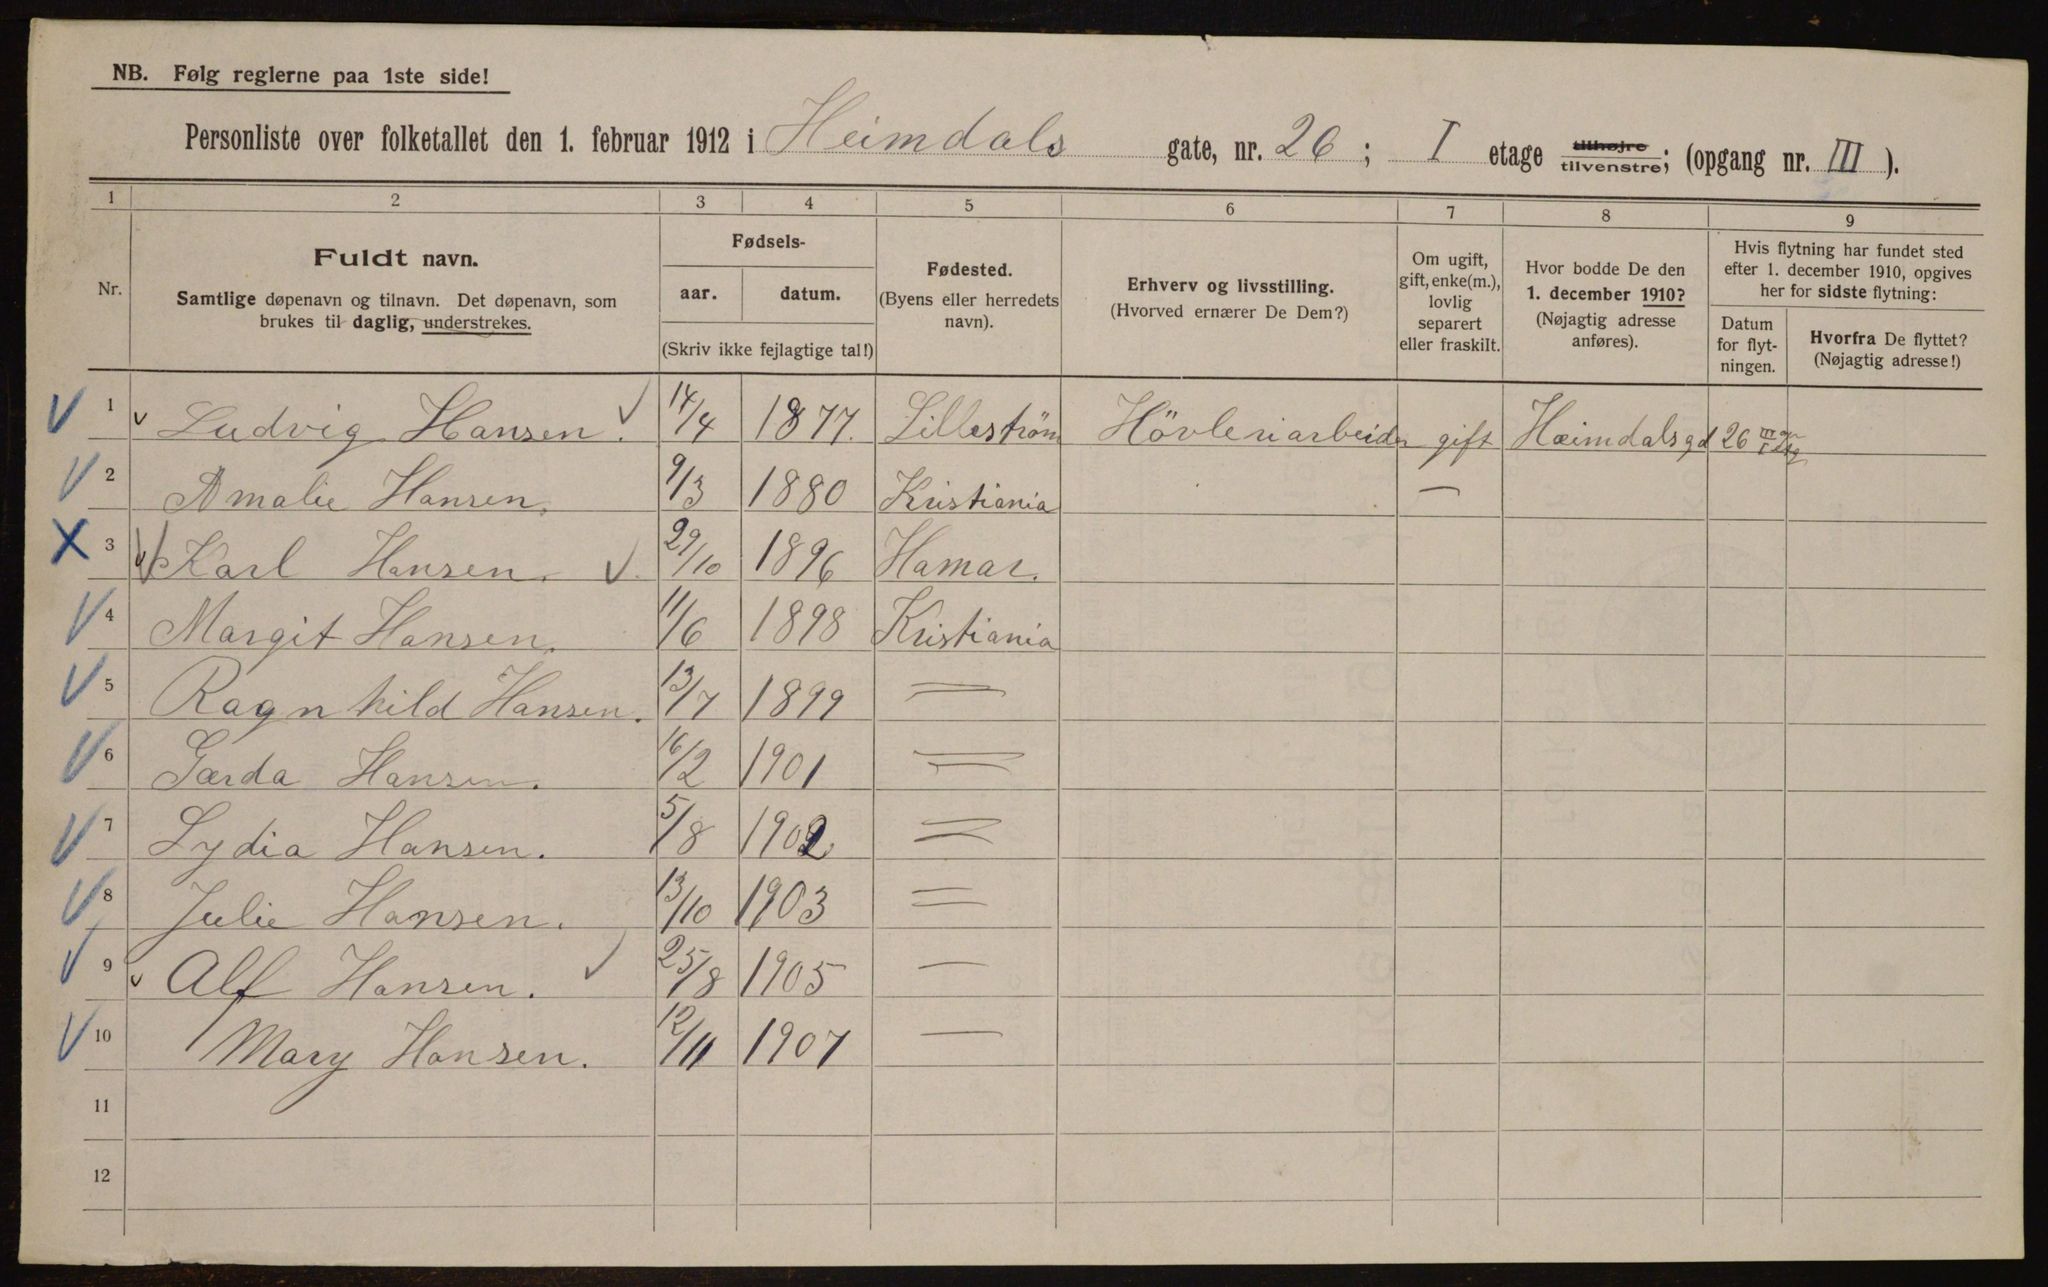 NB. Følg reglerne paa 1ste side!
Personliste over folketallet den 1. februar 1912 i Heimdals gate, nr. 26; I etage tilhøjre tilvenstre; (opgang nr. III).
1 2 3 4 5 6 7 8 9
Nr.
Fuldt navn.
Samtlige døpenavn og tilnavn. Det døpenavn, som
brukes til daglig, understrekes.
Fødsels-
aar. datum.
(Skriv ikke fejlagtige tal!)
Fødested.
(Byens eller herredets
navn).
Erhverv og livsstilling.
(Hvorved ernærer De Dem?)
Om ugift,
gift, enke(m.),
lovlig
separert
eller fraskilt.
Hvor bodde De den
1. december 1910?
(Nøjagtig adresse
anføres).
Hvis flytning har fundet sted
efter 1. december 1910, opgives
her for sidste flytning:
Datum
for flyt-
ningen.
Hvorfra De flyttet?
(Nøjagtig adresse!)
1 Ludvig Hansen. 14/4 1877. Lilleström Hövleriarbeider gift Hæimdalsgd 26
2 Amalie Hansen. 9/3 1880 Kristiania —
3 Karl Hansen. 29/10 1896 Hamar.
4 Margit Hansen. 11/6 1898 Kristiania
5 Ragnhild Hansen. 13/7 1899 —
6 Gærda Hansen. 16/2 1901 —
7 Lydia Hansen. 5/8 1902 —
8 Julie Hansen. 13/10 1903 —
9 Alf Hansen. 25/8 1905 —
10 Mary Hansen. 12/11 1907 —
11
12